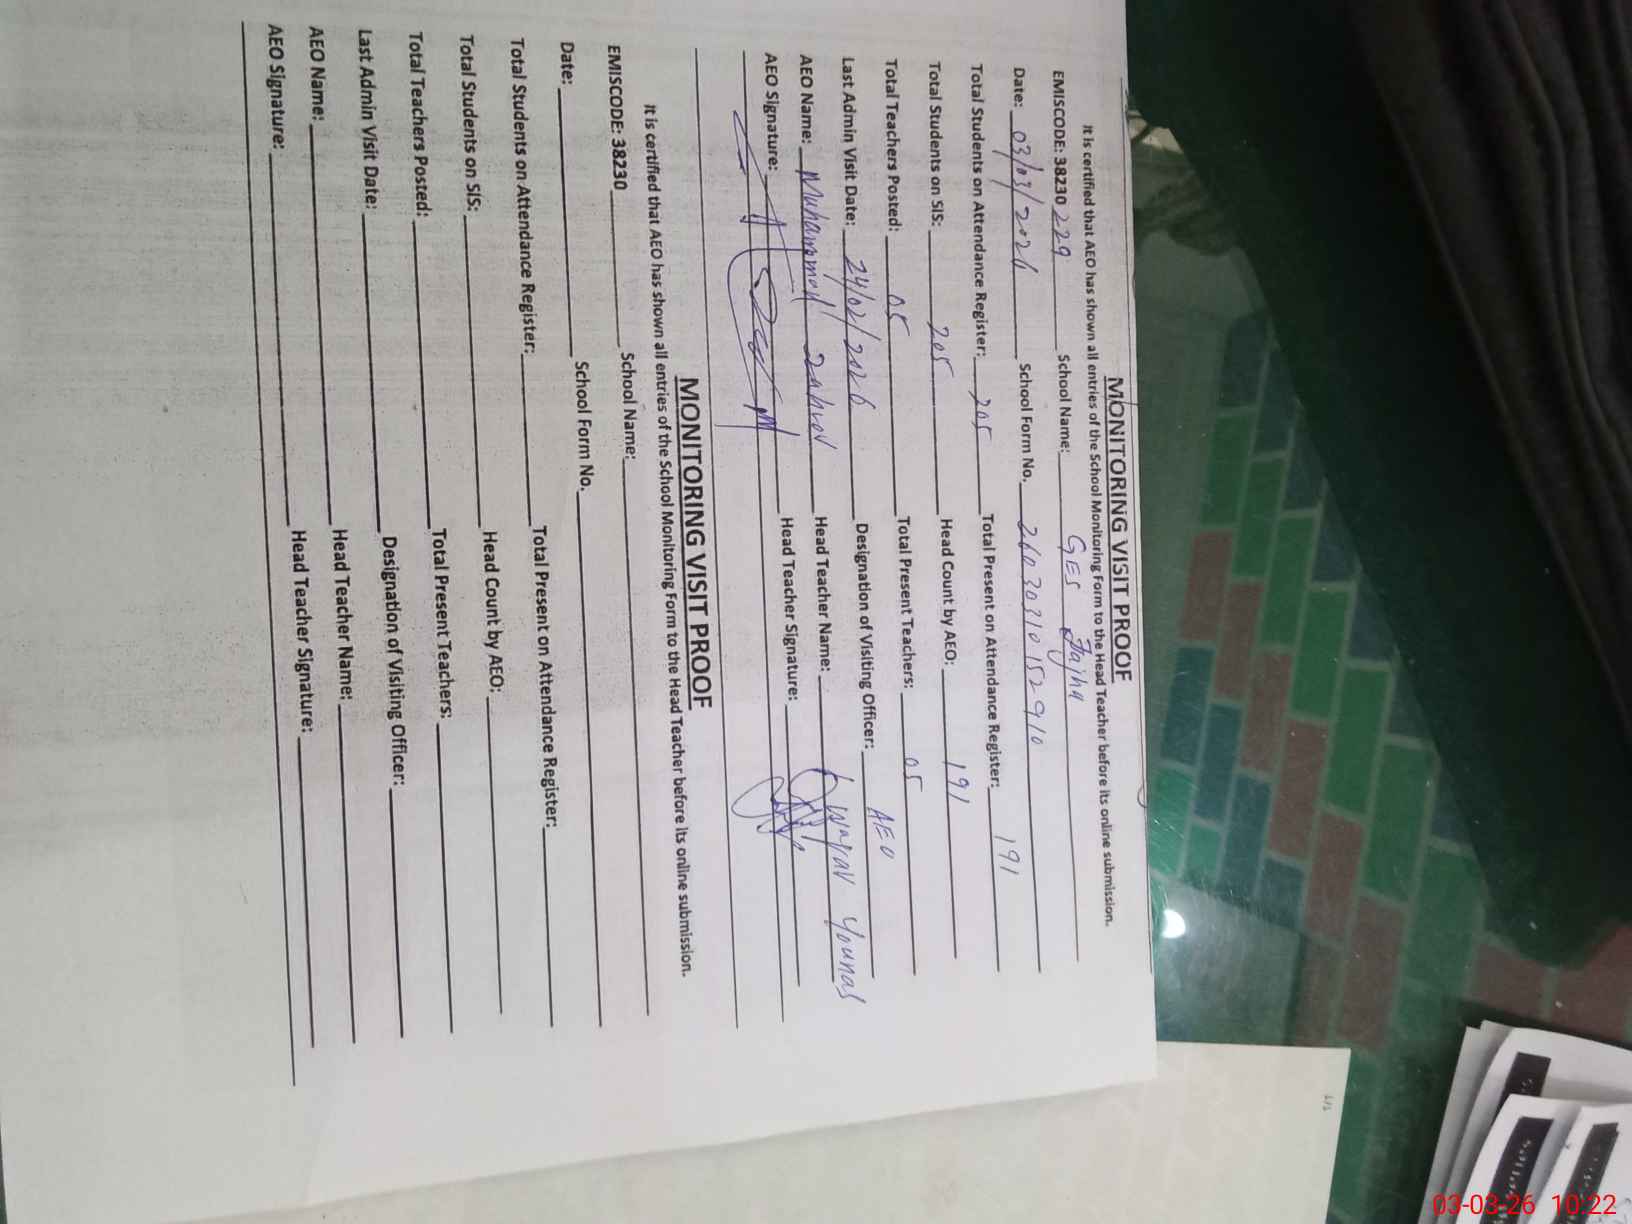 MONITORING VISIT PROOF
It is certified that AEO has shown all entries of the School Monitoring Form to the Head Teacher before its online submission.
EMISCODE: 38230 229 School Name: GES Jajha
Date: 03/03/2026 School Form No. 26030310152910
Total Students on Attendance Register: 205 Total Present on Attendance Register: 191
Total Students on SIS: 205 Head Count by AEO: 191
Total Teachers Posted: 05 Total Present Teachers: 05
Last Admin Visit Date: 24/02/2026 Designation of Visiting Officer: AEO
AEO Name: Muhammad Zahoor Head Teacher Name: Waqar Younas
AEO Signature: Head Teacher Signature:
MONITORING VISIT PROOF
It is certified that AEO has shown all entries of the School Monitoring Form to the Head Teacher before its online submission.
EMISCODE: 38230 School Name:
Date: School Form No.
Total Students on Attendance Register: Total Present on Attendance Register:
Total Students on SIS: Head Count by AEO:
Total Teachers Posted: Total Present Teachers:
Last Admin Visit Date: Designation of Visiting Officer:
AEO Name: Head Teacher Name:
AEO Signature: Head Teacher Signature:
1/1
03-03-26 10:22